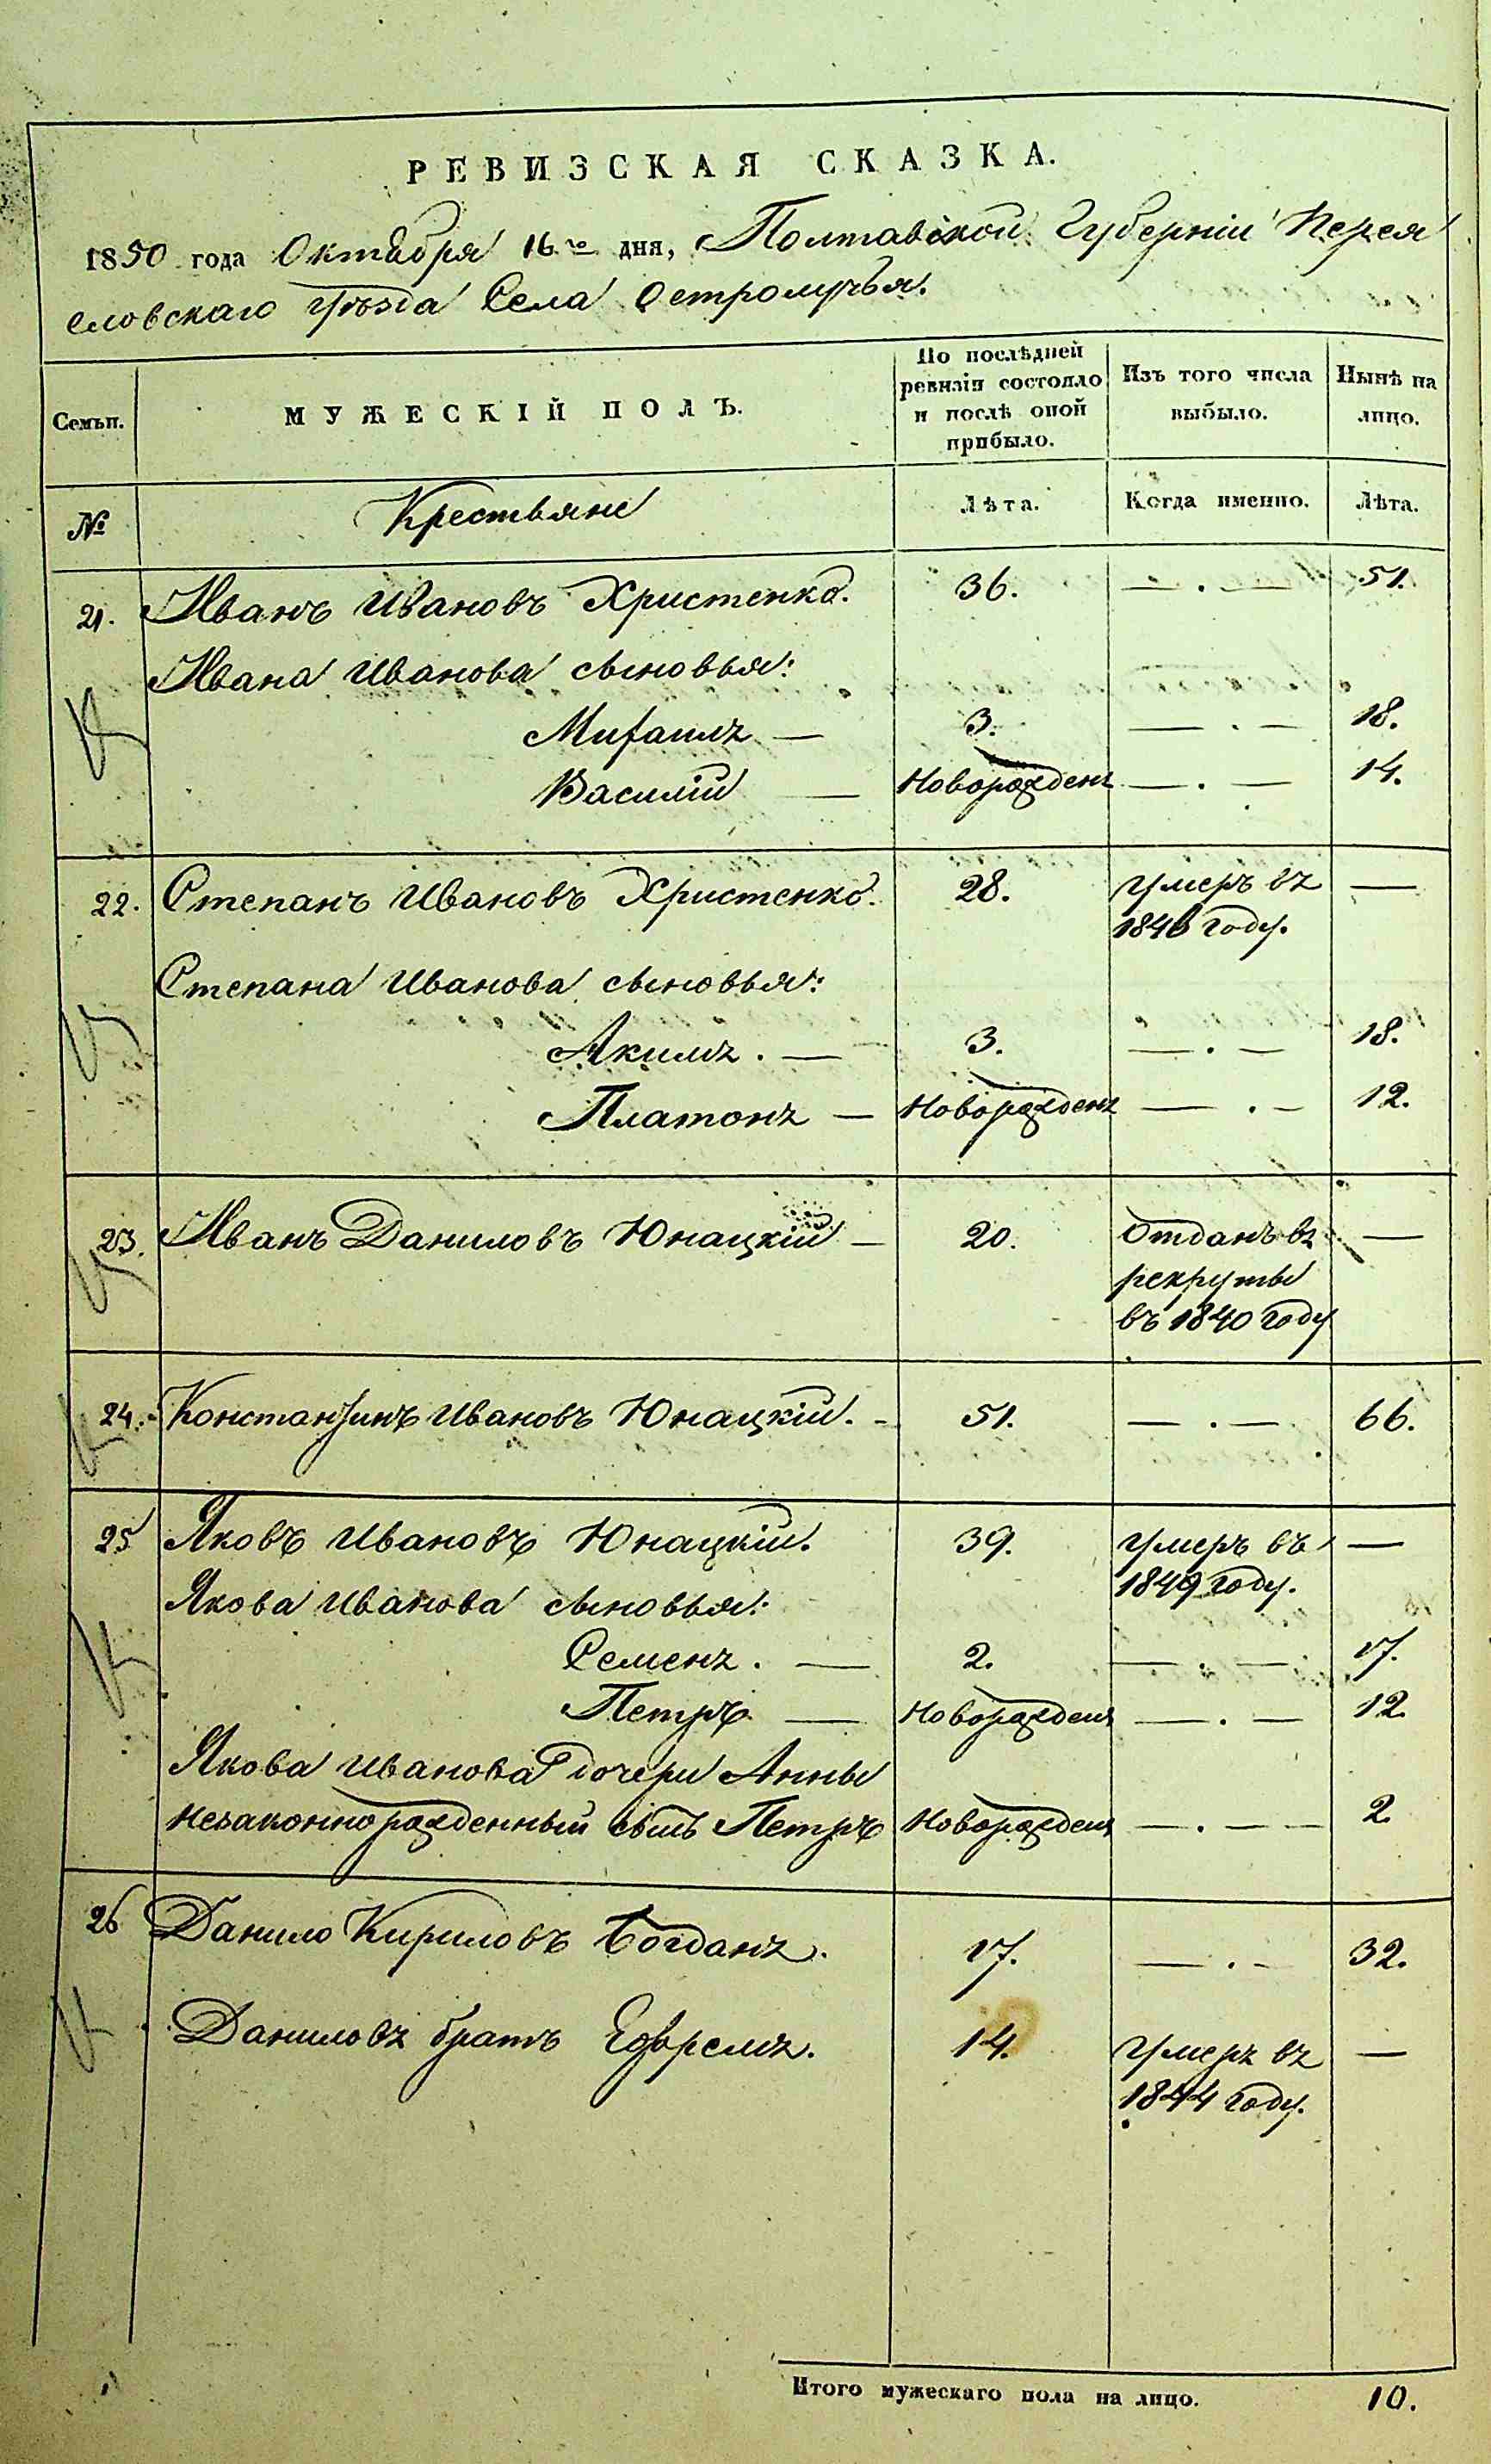 РЕВИЗСКАЯ СКАЗКА.
1850 года Октября 16го дня, Полтавской Губерніи Перея
словскаго Уѣзда Села Остролучья.
Семьи.
МУЖЕСКІЙ ПОЛЪ.
По послѣдней ревизіи состояло и послѣ оной прибыло.
Изъ того числа выбыло.
Нынѣ на лицо.
№ Крестьяне Лѣта. Когда именно. Лѣта.
21. Иванъ Ивановъ Христенко. 36. — . — 51.
Ивана Иванова сыновья:
Михаилъ — 3. — . — 18.
Василій — Новорожденъ — . — 14.
22. Степанъ Ивановъ Христенко. 28. умеръ въ —
1846 году.
Степана Иванова сыновья:
Акимъ. — 3. — . — 18.
Платонъ — Новорожденъ — . — 12.
23. Иванъ Даниловъ Юнацкій — 20. Отданъ въ —
рекруты
въ 1840 году
24. Константинъ Ивановъ Юнацкій. - 51. — . — 66.
25 Яковъ Ивановъ Юнацкій. 39. умеръ въ —
1849 году.
Якова Иванова сыновья:
Семенъ. — 2. — . — 17.
Петръ — Новорожденъ — . — 12.
Якова Иванова дочери Анны
незаконнорожденный сынъ Петръ Новорожденъ — . — — 2.
26 Данило Кириловъ Богданъ. 17. — . - 32.
Даниловъ братъ Ефремъ. 14. умеръ въ —
1844 году.
Итого мужескаго пола на лицо. 10.